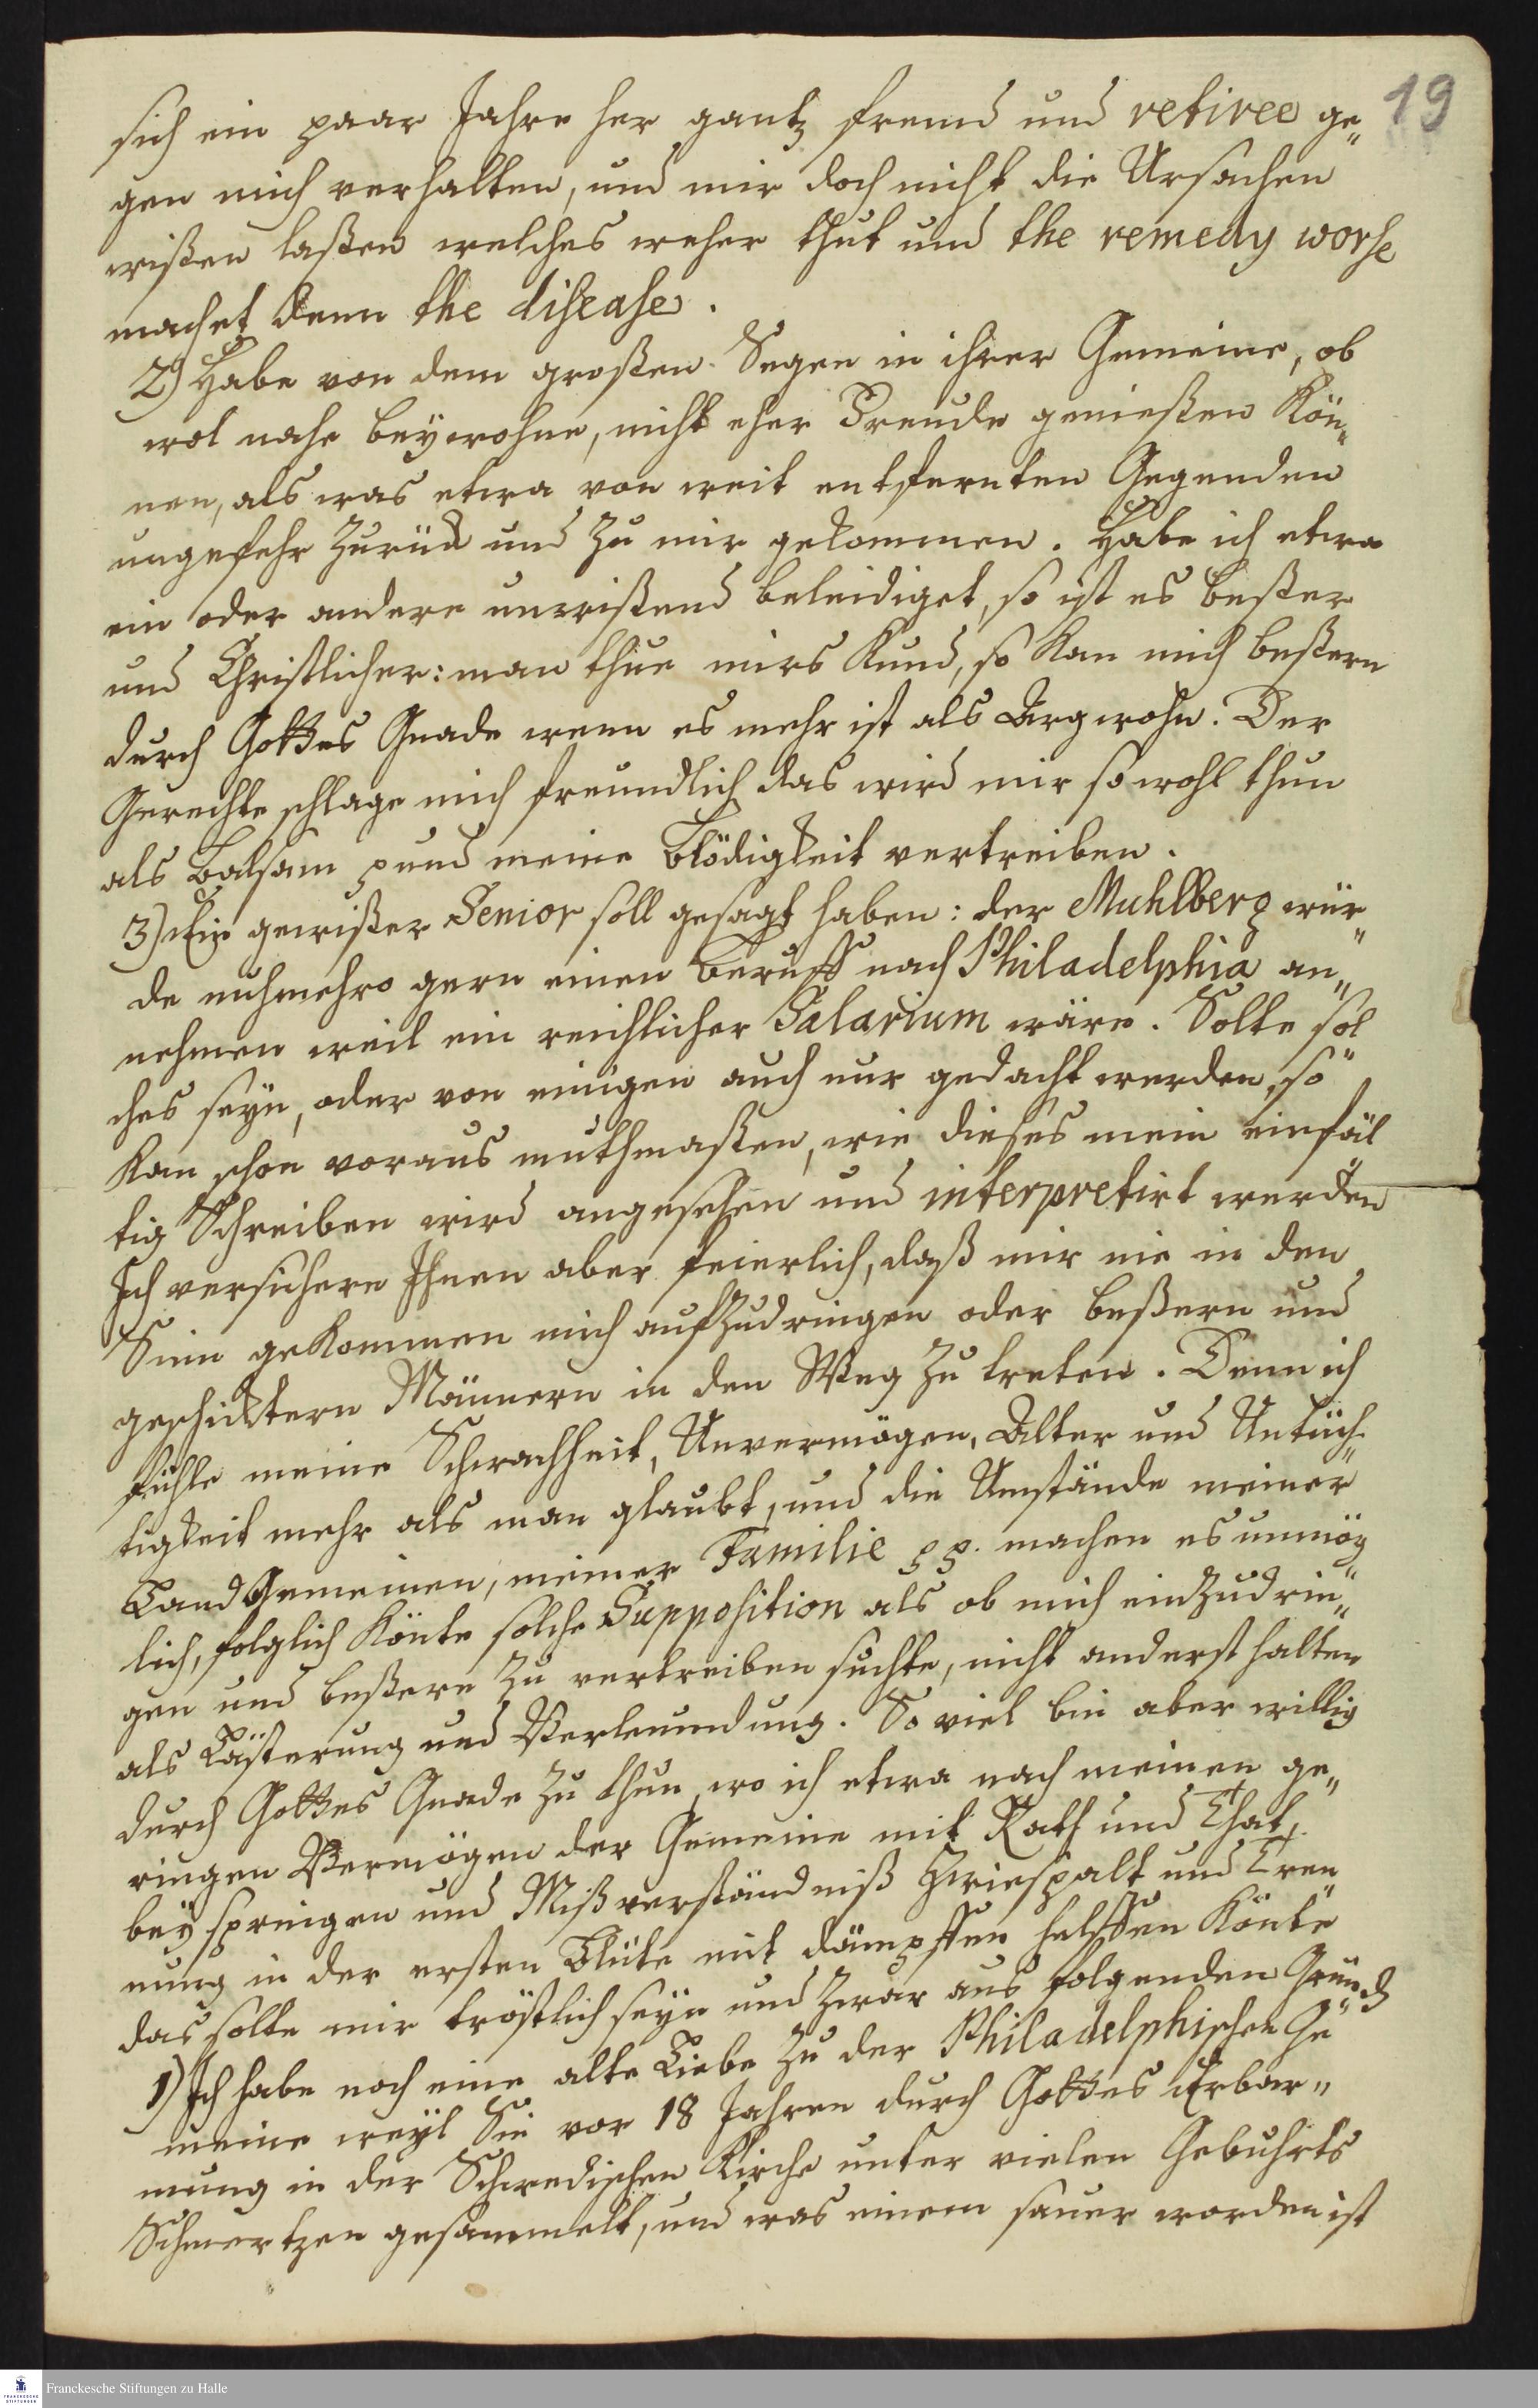 19
sich ein paar Jahre her gantz fremd und retiree ge„
gen mich verhalten, und mir doch nicht die Ursachen
wißen laßen welches weher thut und the remedy worse
machet denn the disease.
2) Habe von dem großen Segen in ihrer Gemeine, ob
wol nahe beywohne, nicht eher Freude genießen kön„
nen, als was etwa von weit entfernten Gegenden
ungefehr zurück und zu mir gekommen. Habe ich etwa
ein oder andere unwißend beleidiget, so ist es beßer
und Christlicher: man thue mirs kund, so kan mich beßern
durch Gottes Gnade wenn es mehr ist als Argwohn. Der
Gerechte schlage mich freundlich das wird mir so wohl thun
als Balsam p und meine Blödigkeit vertreiben.
3) Ein gewißer Senior soll gesagt haben: der Muhlberg wür„
de nuhmehro gern einen Beruff nach Philadelphia an„
nehmen weil ein reichlicher Salarium wäre. Solte sol„
ches seyn, oder von einigen auch nur gedacht werden, so
kan schon voraus muthmaßen, wie dieses mein einfäl„
tig Schreiben wird angesehen und interpretirt werden
Ich versichere Ihnen aber feierlich, daß mir nie in den
Sinn gekommen mich aufzudringen oder beßern und
geschicktern Männern in den Weg zu treten. Denn ich
fühle meine Schwachheit, Unvermögen, Alter und Untüch„
tigkeit mehr als man glaubt, und die Umstände meiner
Land Gemeinen, meiner Familie pp. machen es unmög„
lich, folglich könte solche Supposition als ob mich einzudrin„
gen und beßere zu vertreiben suchte, nicht anderst halten
als Lästerung und Verleumdung. So viel bin aber willig
durch Gottes Gnade zu thun, wo ich etwa nach meinen ge„
ringen Vermögen der Gemeine mit Rath und That,
bey springen und Mißverständniß Zwiespalt und Tren„
nung in der ersten Blüte mit dämpffen helffen könte
das solte mir tröstlich seyn und zwar aus folgenden Gründ
1) Ich habe noch eine alte Liebe zu der Philadelphischen Ge„
meine weyl Sie vor 18 Jahren durch Gottes Erbar„
mung in der Schwedischen Kirche unter vielen Gebuhrts
Schmertzen gesammelt, und was einem sauer worden ist
Franckesche Stiftungen zu Halle